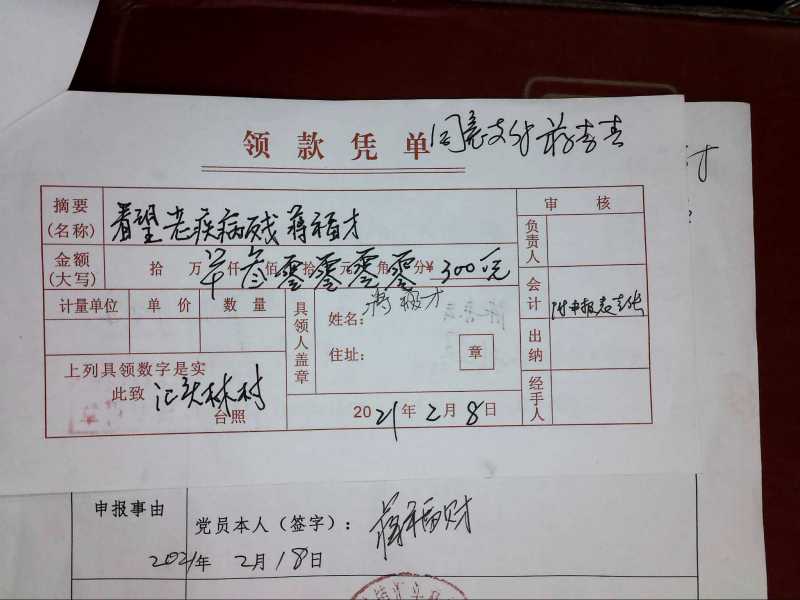 领款凭单 同意支付
摘要(名称) 看望老疾病残蒋福才
审核
金额(大写) 拾万仟佰拾元角分¥ 300元
零零零零
负责人
计量单位 单价 数量
具领人盖章
姓名: 蒋福才
会计
住址:
章
出纳
上列具领数字是实
此致 汇头林村
台照
2021年2月8日
经手人
才
申报事由
党员本人(签字): 蒋福财
2021年2月18日